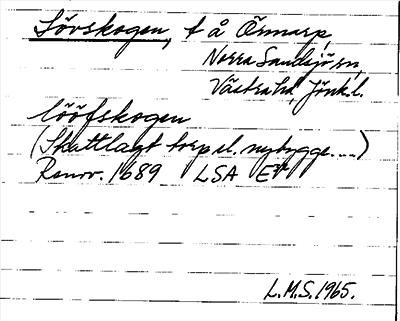 Lövskogen, t å Örmarp,
Norra Sandsjö sn,
Västra hd, Jönk.l.
lööfskogen
(Skattlagt torp el. nybygge....)
Ranr. 1689 LSA EV
L.M.S. 1965.